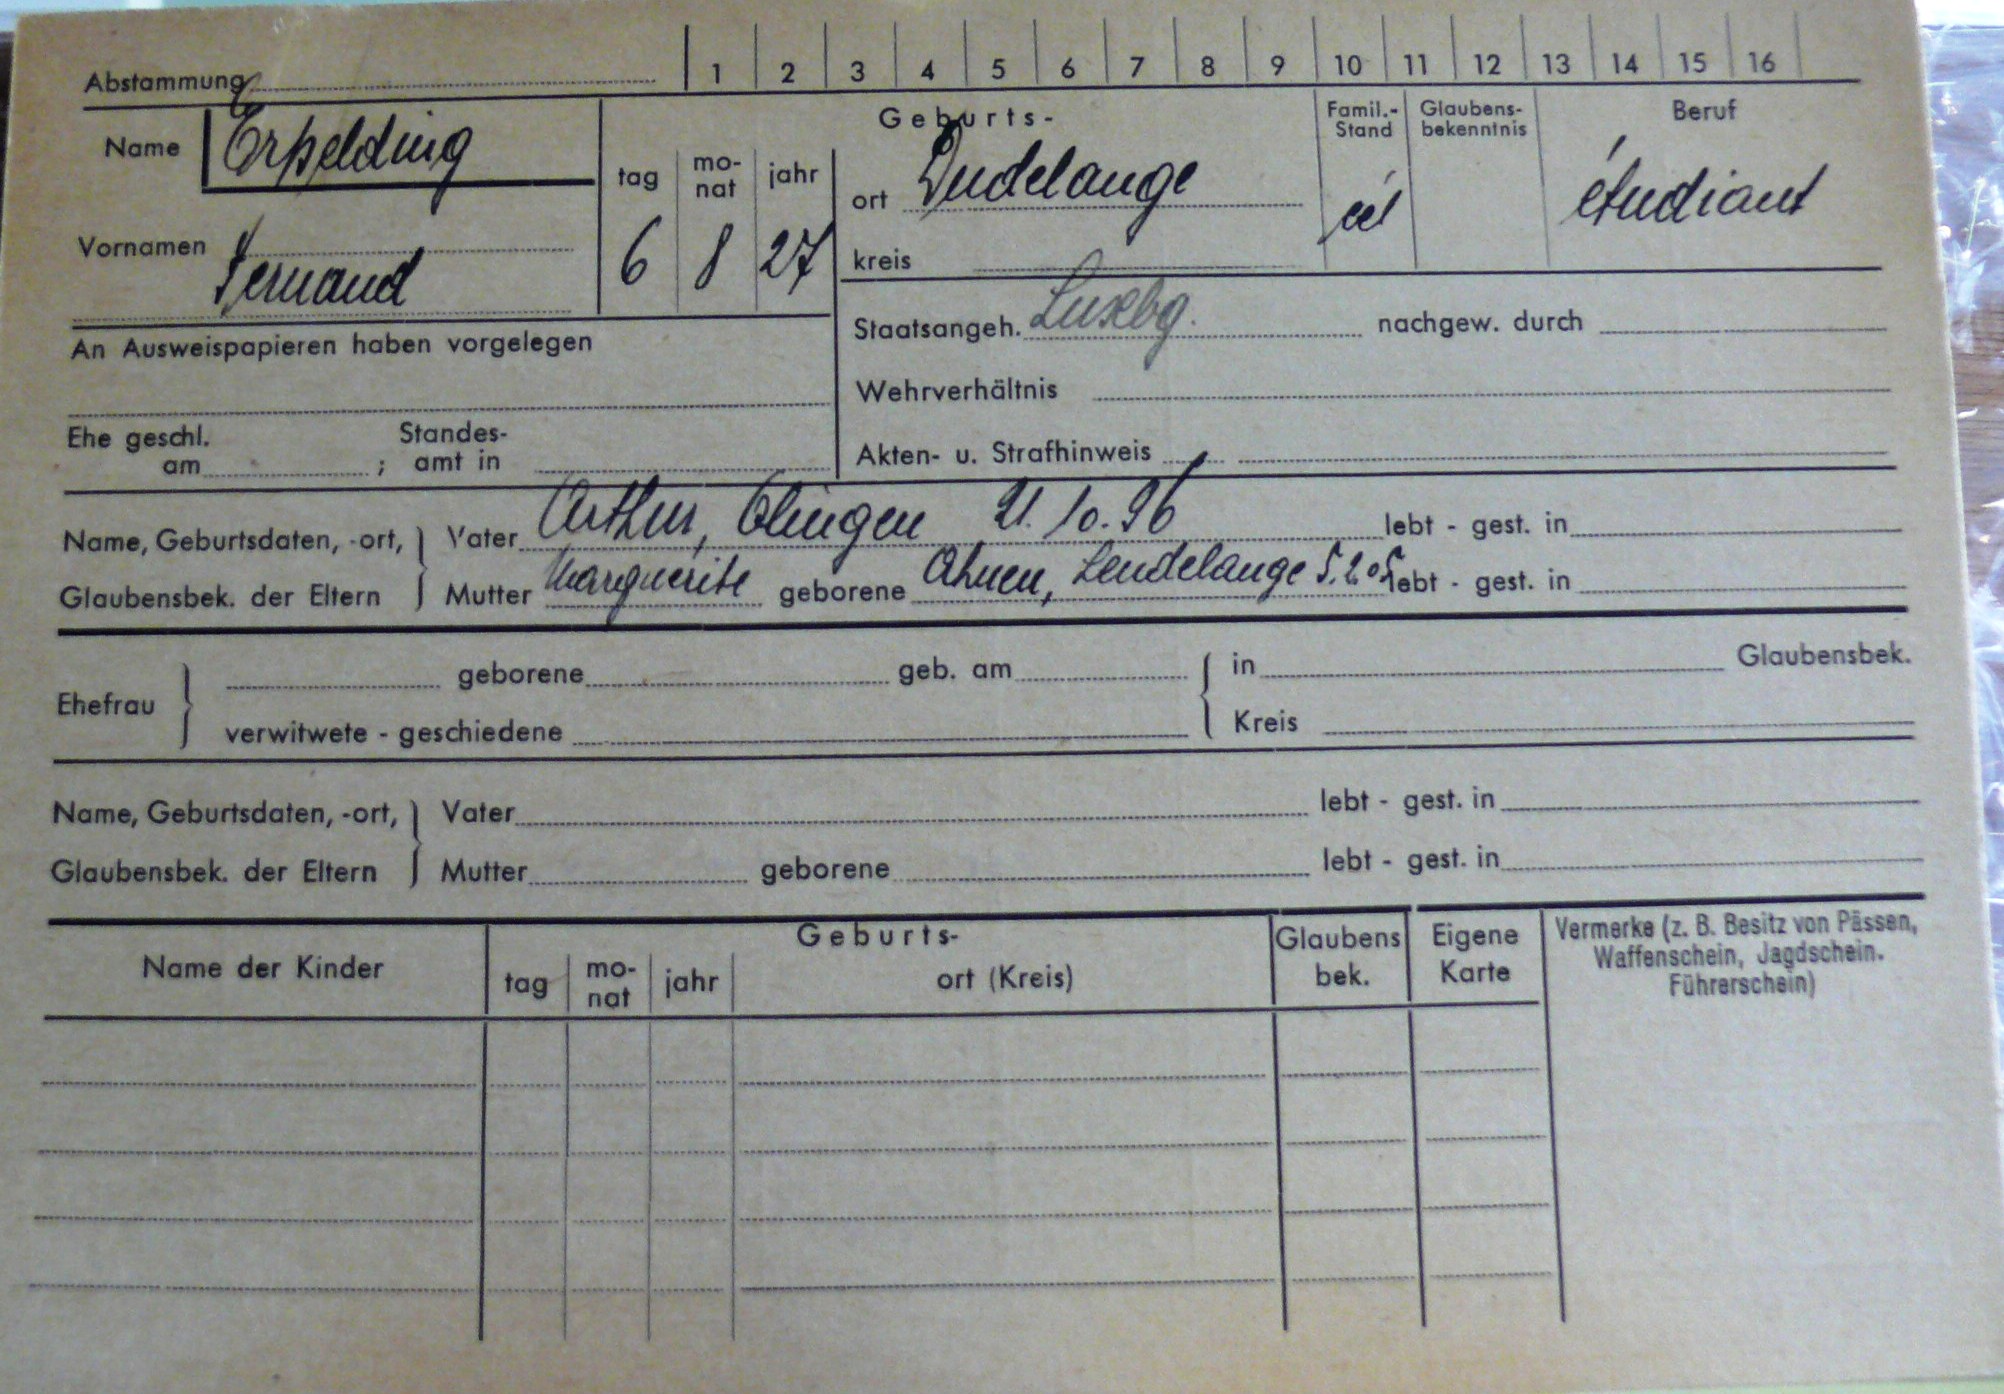 Abstammung 1 2 3 4 5 6 7 8 9 10 11 12 13 14 15 16
Name Erpelding
Vornamen Fernand
Geburts-
tag mo-nat jahr
6 8 27
ort Dudelange
kreis
Famil.-Stand
cél
Glaubens-bekenntnis
Beruf
étudiant
An Ausweispapieren haben vorgelegen
Staatsangeh. Luxbg. nachgew. durch
Wehrverhältnis
Ehe geschl. am ; Standes-amt in
Akten- u. Strafhinweis
Name, Geburtsdaten, -ort,
Glaubensbek. der Eltern
Vater Arthur, Olingen 21.10.96 lebt - gest. in
Mutter Marguerite geborene Ahnen, Lendelange 5.2.05 lebt - gest. in
Ehefrau
geborene geb. am in Glaubensbek.
verwitwete - geschiedene Kreis
Name, Geburtsdaten, -ort,
Glaubensbek. der Eltern
Vater lebt - gest. in
Mutter geborene lebt - gest. in
Name der Kinder
Geburts-
tag mo-nat jahr ort (Kreis)
Glaubens bek.
Eigene Karte
Vermerke (z. B. Besitz von Pässen,
Waffenschein, Jagdschein.
Führerschein)